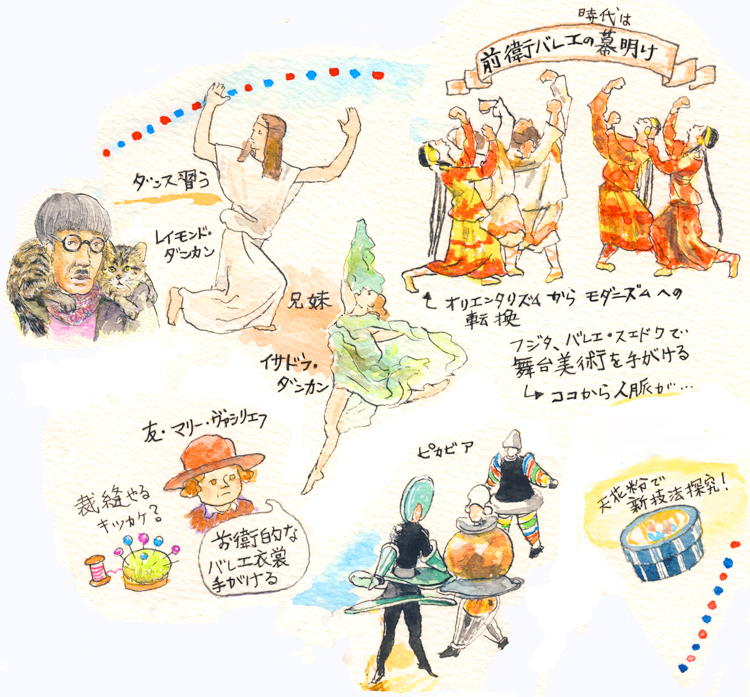 時代は
前衛バレエの幕明け
ダンス習う
レイモンド・
ダンカン
兄妹
イサドラ・
ダンカン
オリエンタリズムから モダニズムへの
転換
フジタ、バレエ・スエドワで
舞台美術を手がける
ココから人脈が…
友・マリー・ヴァシリエフ
裁縫やる
キッカケ?
前衛的な
バレエ衣裳
手がける
ピカビア
天花粉で
新技法探究!